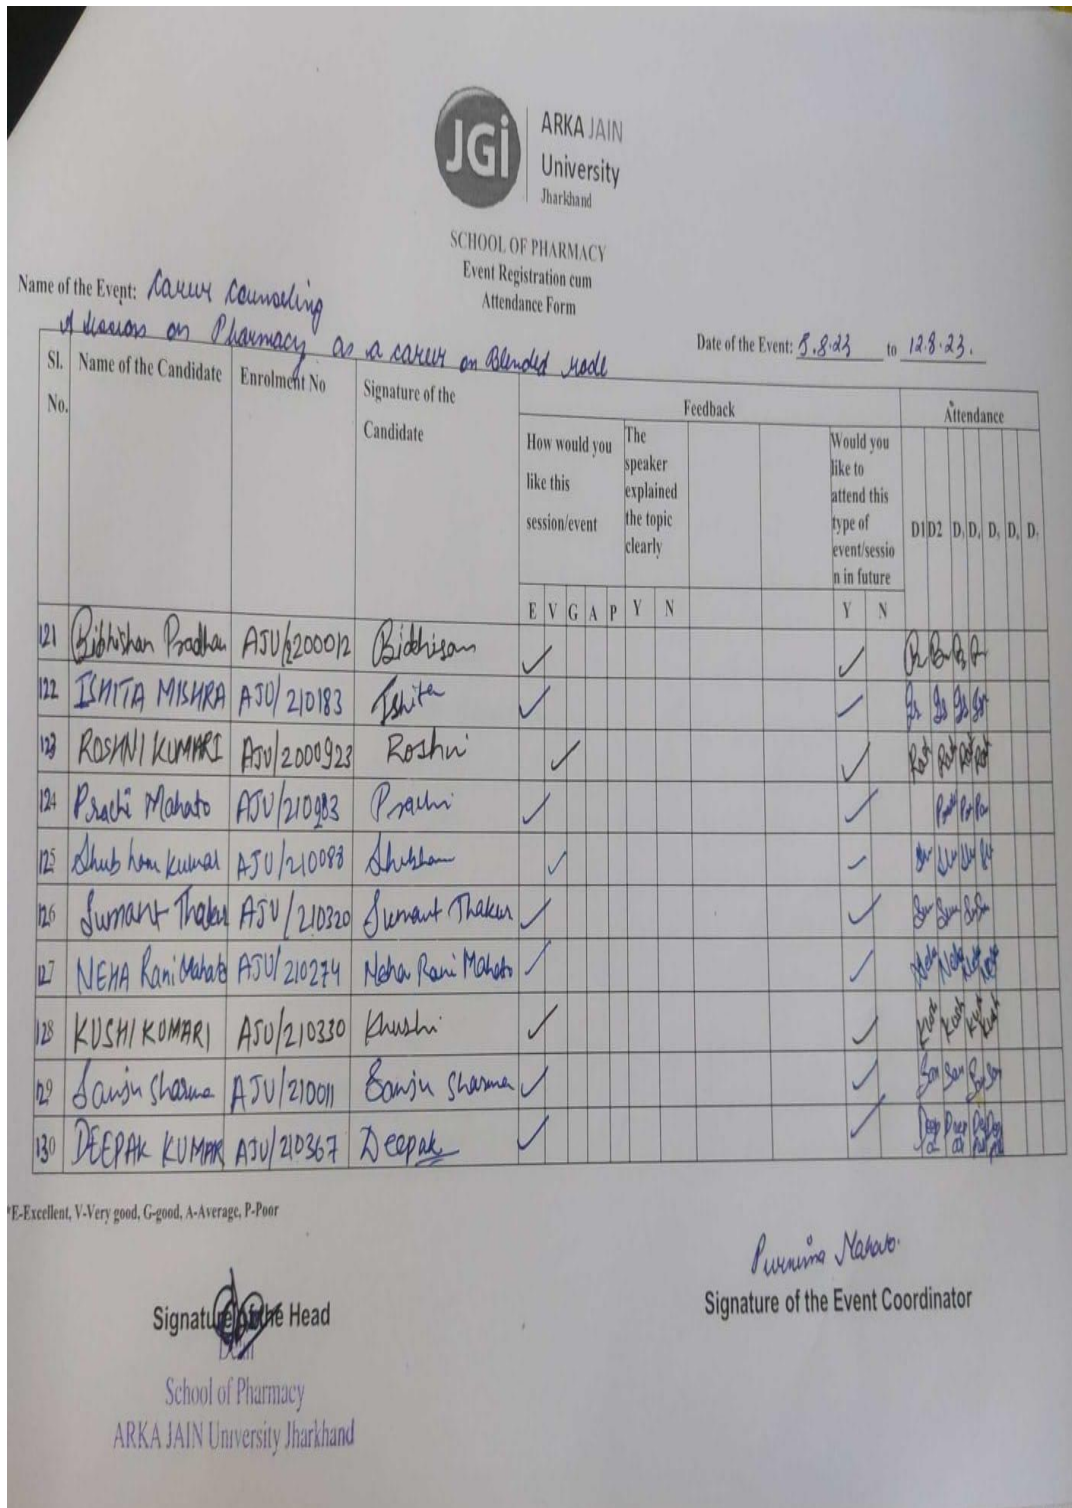 JGi
ARKA JAIN
University
Jharkhand
SCHOOL OF PHARMACY
Event Registration cum
Attendance Form
Name of the Event: Career Counseling
on Pharmacy as a career on Blended mode
Date of the Event: 8.8.23 to 12.8.23.
Sl. No. Name of the Candidate Enrolment No Signature of the Candidate Feedback Attendance
How would you like this session/event
The speaker explained the topic clearly
Would you like to attend this type of event/sessio n in future
D1 D2 D3 D4 D5 D6 D7
E V G A P Y N Y N
121 Bibhishan Pradhan AJU/2200012 Bibhisan
122 ISHITA MISHRA AJU/210183 Ishita
123 ROSHNI KUMARI AJU/2000923 Roshni
124 Prachi Mahato AJU/210983 Prachi
125 Shubham Kumar AJU/210088 Shubham
126 Sumant Thakur AJU/210320 Sumant Thakur
127 NEHA Rani Mahato AJU/210274 Neha Rani Mahato
128 KUSHI KUMARI AJU/210330 Khushi
129 Sanju Sharma AJU/210011 Sanju Sharma
130 DEEPAK KUMAR AJU/210367 Deepak
*E-Excellent, V-Very good, G-good, A-Average, P-Poor
Purnima Mahato.
Signature of the Event Coordinator
Signature of the Head
School of Pharmacy
ARKA JAIN University Jharkhand